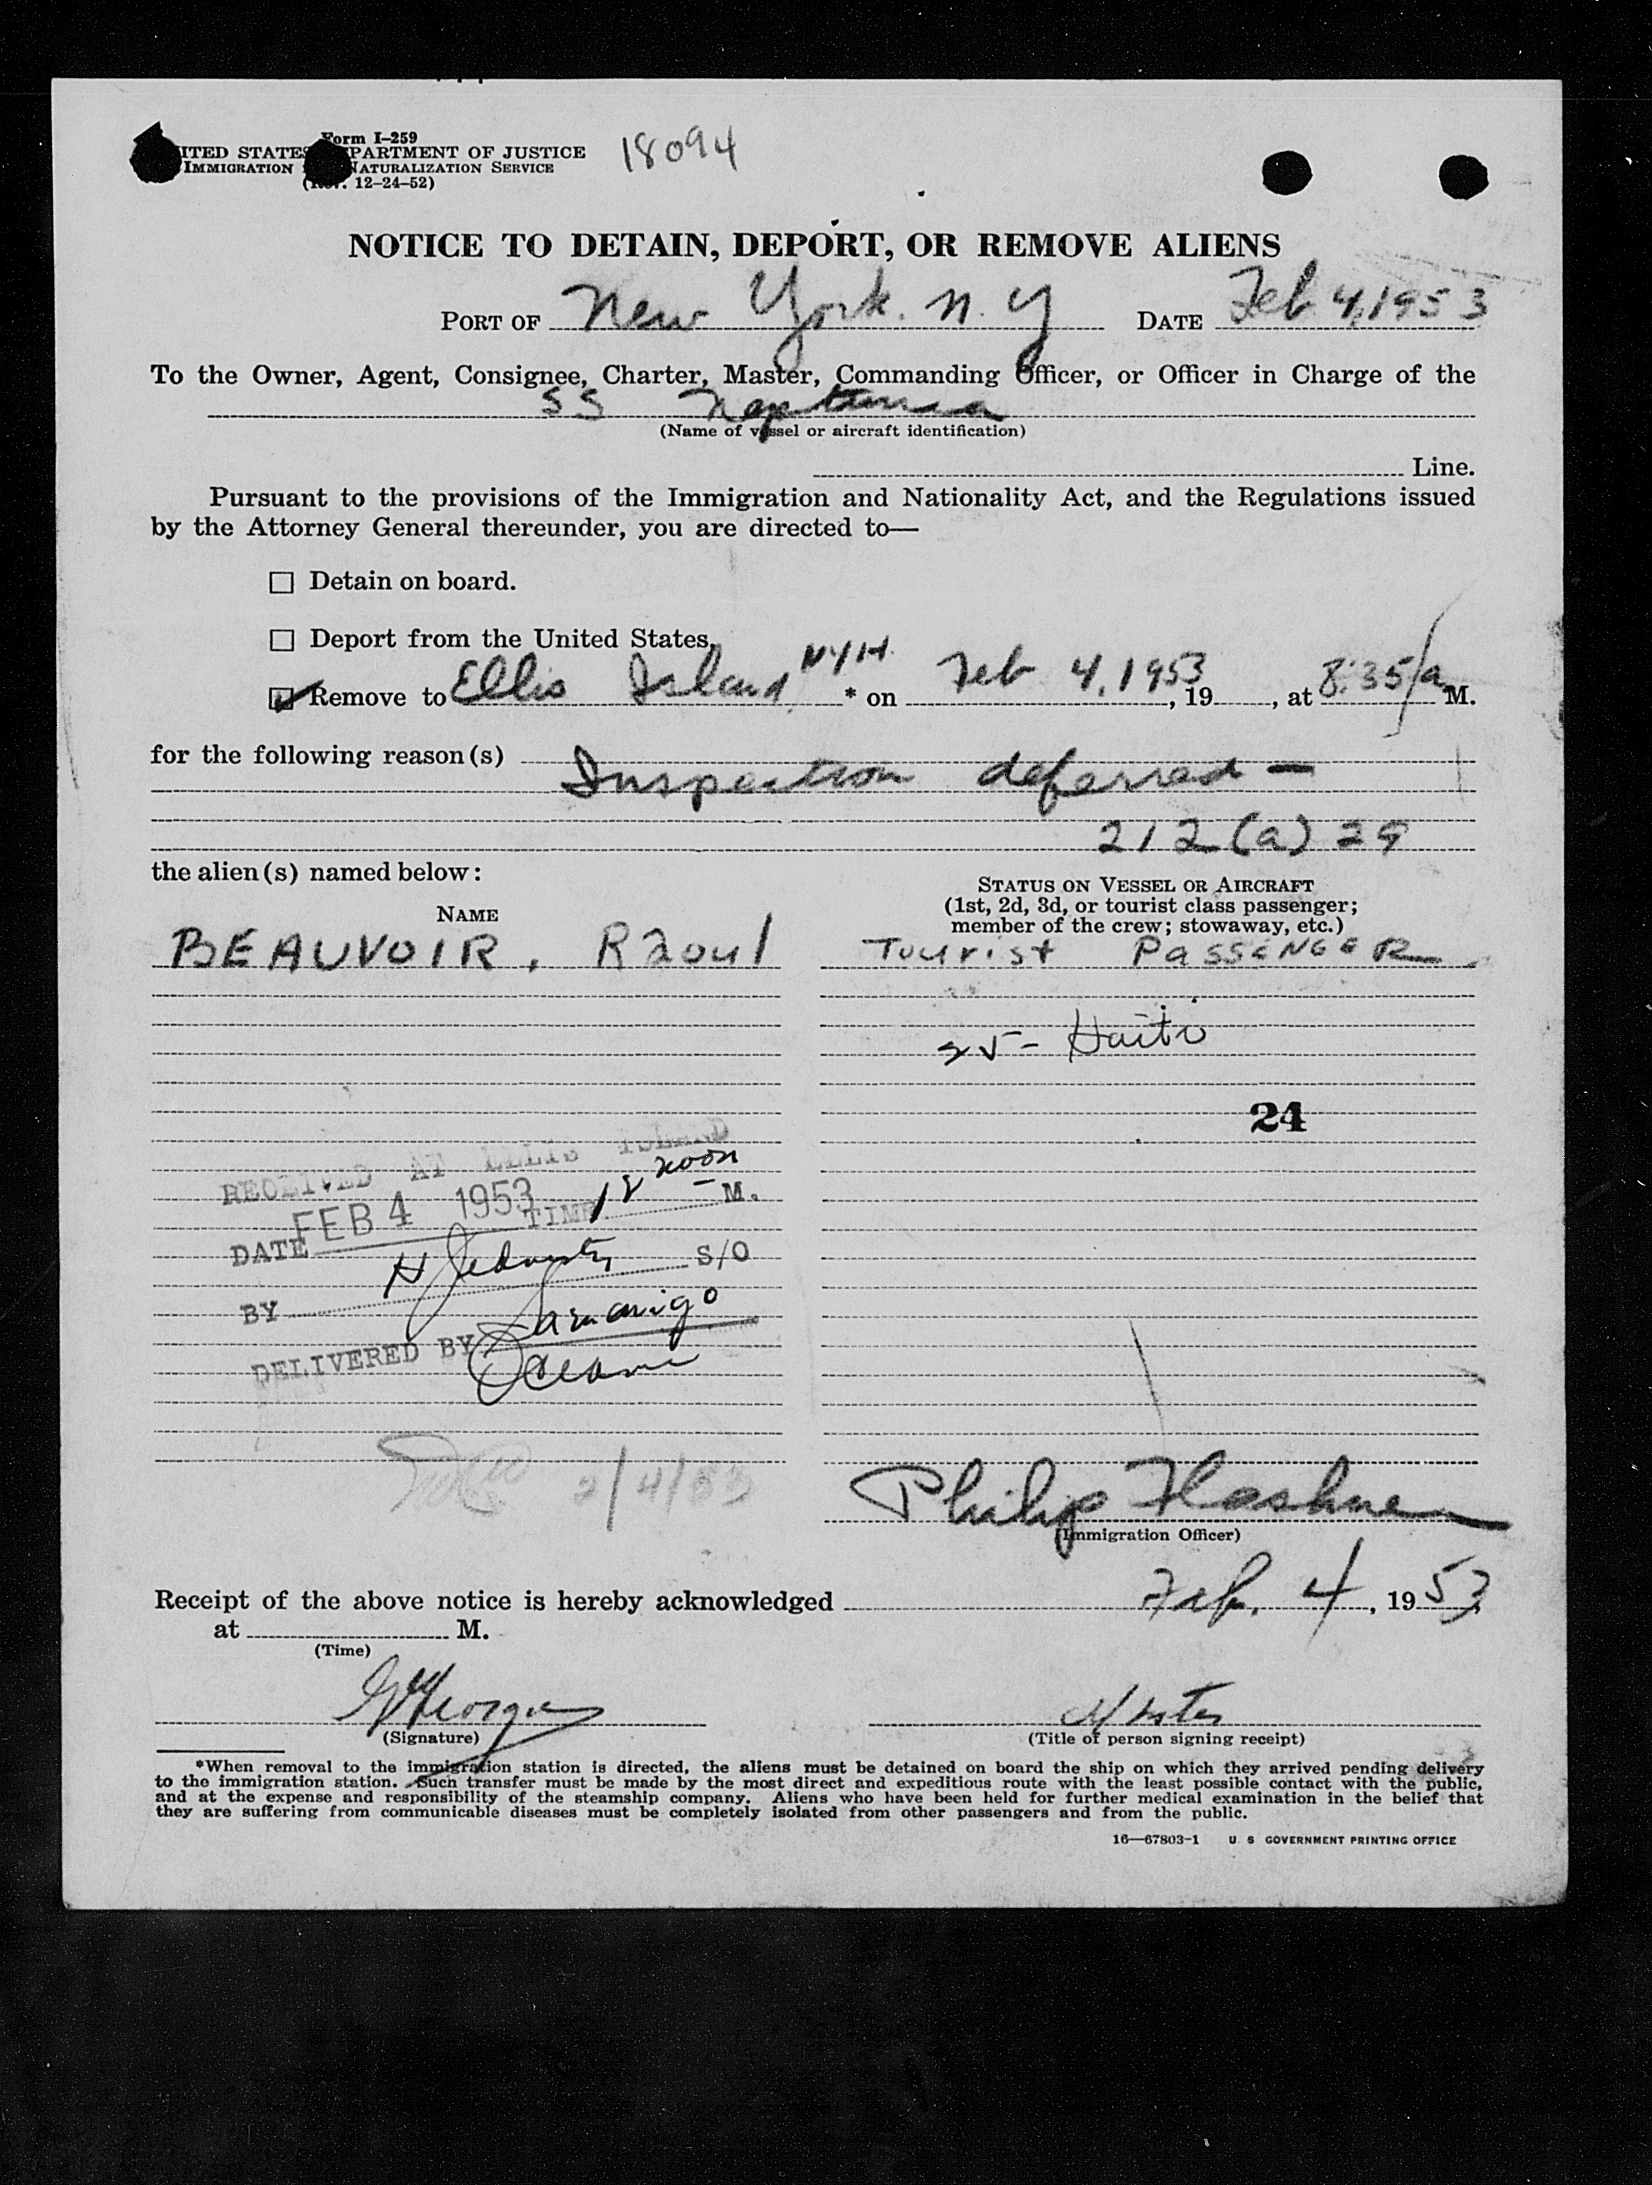 Form I-259
ITED STATES PARTMENT OF JUSTICE
IMMIGRATION NATURALIZATION SERVICE
12-24-52)
18094
NOTICE TO DETAIN, DEPORT, OR REMOVE ALIENS
PORT OF New York. N. Y DATE Feb 4, 1953
To the Owner, Agent, Consignee, Charter, Master, Commanding Officer, or Officer in Charge of the
SS Neptunia
(Name of vessel or aircraft identification)
Line.
Pursuant to the provisions of the Immigration and Nationality Act, and the Regulations issued
by the Attorney General thereunder, you are directed to—
☐ Detain on board.
☐ Deport from the United States.
☑ Remove to Ellis Island NYH. * on Feb 4, 1953, 19, at 8:35/a M.
for the following reason(s)
Inspection deferred —
212(a) 29
the alien(s) named below:
NAME
STATUS ON VESSEL OR AIRCRAFT
(1st, 2d, 3d, or tourist class passenger;
member of the crew; stowaway, etc.)
BEAUVOIR, Raoul Tourist PASSENGER
25 - Haiti
24
RECEIVED AT ELLIS ISLAND
DATE FEB 4 1953 TIME 12 noon M.
BY S/O
DELIVERED BY
2/4/53
Philip
(Immigration Officer)
Receipt of the above notice is hereby acknowledged Feb. 4, 1953.
at M.
(Time)
(Signature)
(Title of person signing receipt)
*When removal to the immigration station is directed, the aliens must be detained on board the ship on which they arrived pending delivery
to the immigration station. Such transfer must be made by the most direct and expeditious route with the least possible contact with the public,
and at the expense and responsibility of the steamship company. Aliens who have been held for further medical examination in the belief that
they are suffering from communicable diseases must be completely isolated from other passengers and from the public.
16—67803-1 U. S. GOVERNMENT PRINTING OFFICE